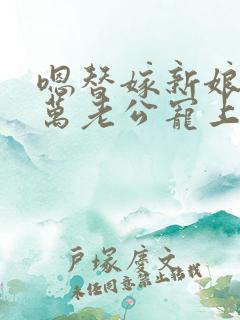 嗯替嫁新娘
萬老公寵上
戸塚慶文
未任同意禁止转载